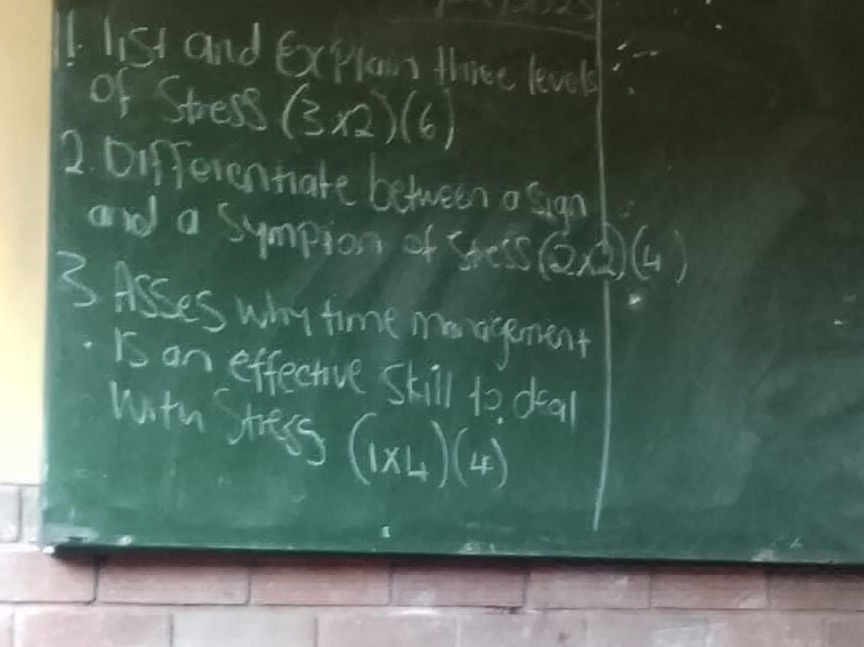 1. List and Explain three levels
of Stress (3x2)(6)
2. Differentiate between a sign
and a Sympion of Stress (2x2)(4)
3 Asses why time management
is an effective skill to deal
with Stress (1x4)(4)